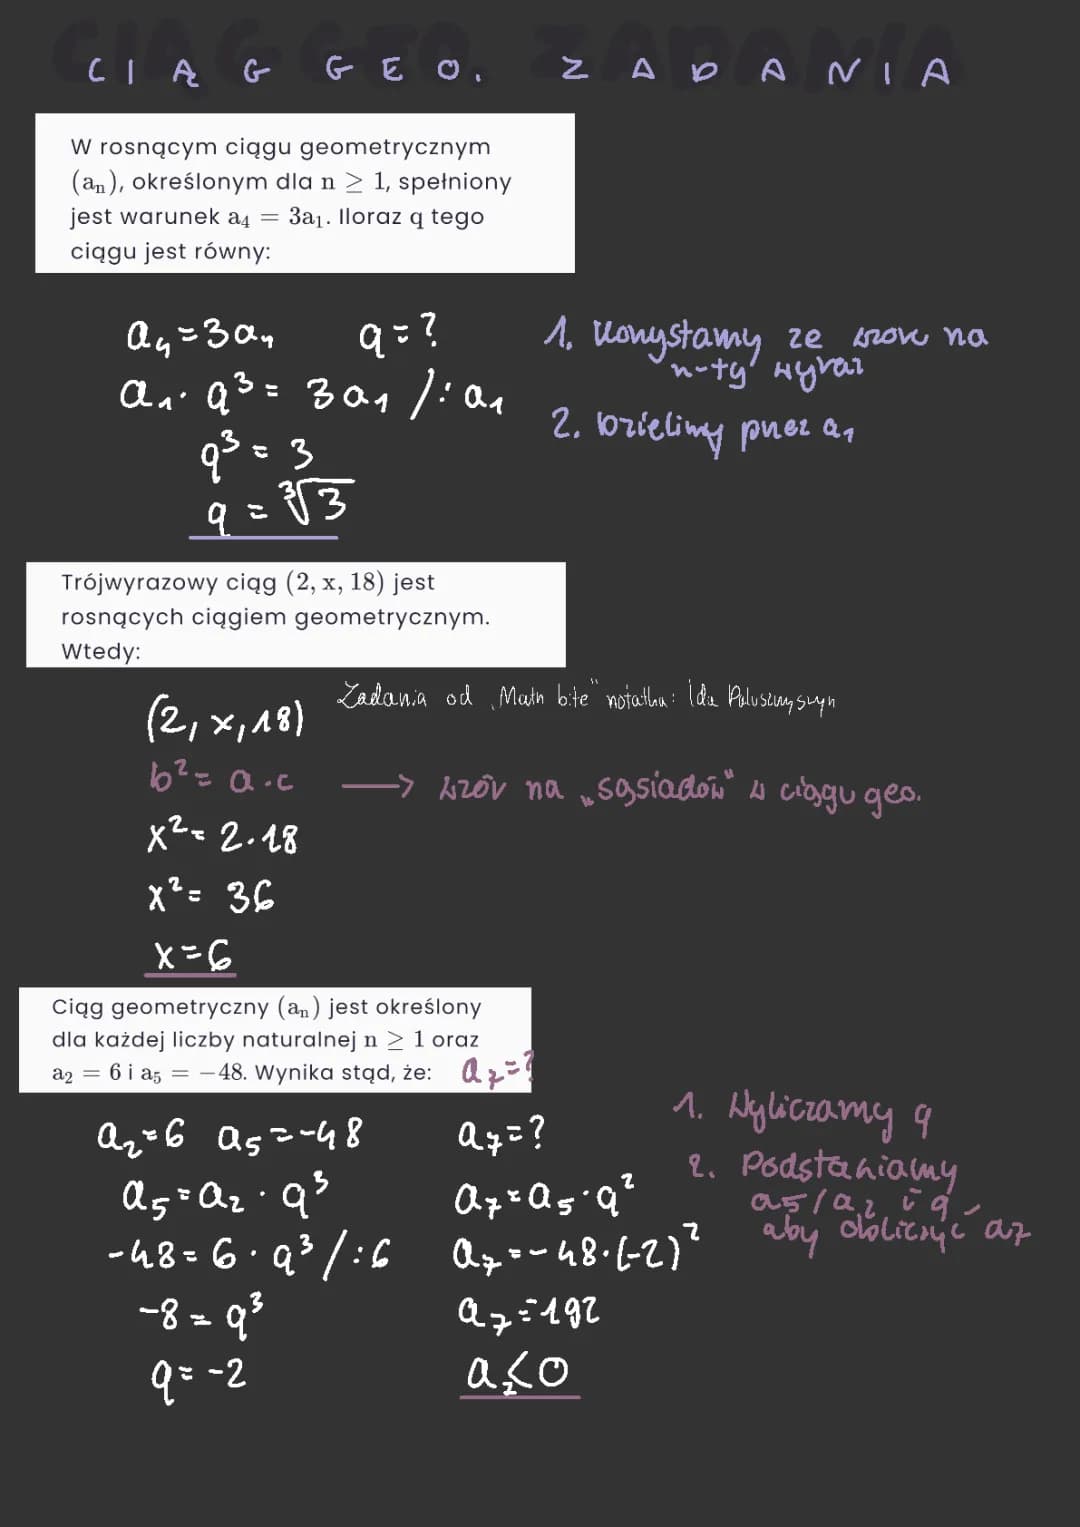 CIĄG GEO. ZADANIA
W rosnącym ciągu geometrycznym
(aₙ), określonym dla n ≥ 1, spełniony
jest warunek a₄ = 3a₁. Iloraz q tego
ciągu jest równy:
a₄=3a₁ q=?
a₁·q³=3a₁ /:a₁
q³=3
q=∛3
1. Korzystamy ze wzoru na
n-ty wyraz
2. Dzielimy przez a₁
Trójwyrazowy ciąg (2, x, 18) jest
rosnących ciągiem geometrycznym.
Wtedy:
Zadania od „Math bite" notatka: Ida
(2, x, 18)
b²=a·c → wzór na „sąsiadów" w ciągu geo.
x²=2·18
x²=36
x=6
Ciąg geometryczny (aₙ) jest określony
dla każdej liczby naturalnej n ≥ 1 oraz
a₂ = 6 i a₅ = −48. Wynika stąd, że: a₇=?
a₂=6 a₅=-48
a₅=a₂·q³
-48=6·q³/:6
-8=q³
q=-2
a₇=?
a₇=a₅·q²
a₇=-48·(-2)²
a₇=-192
a₇<0
1. Wyliczamy q
2. Podstawiamy
a5/a₂ i q,
aby obliczyć a7